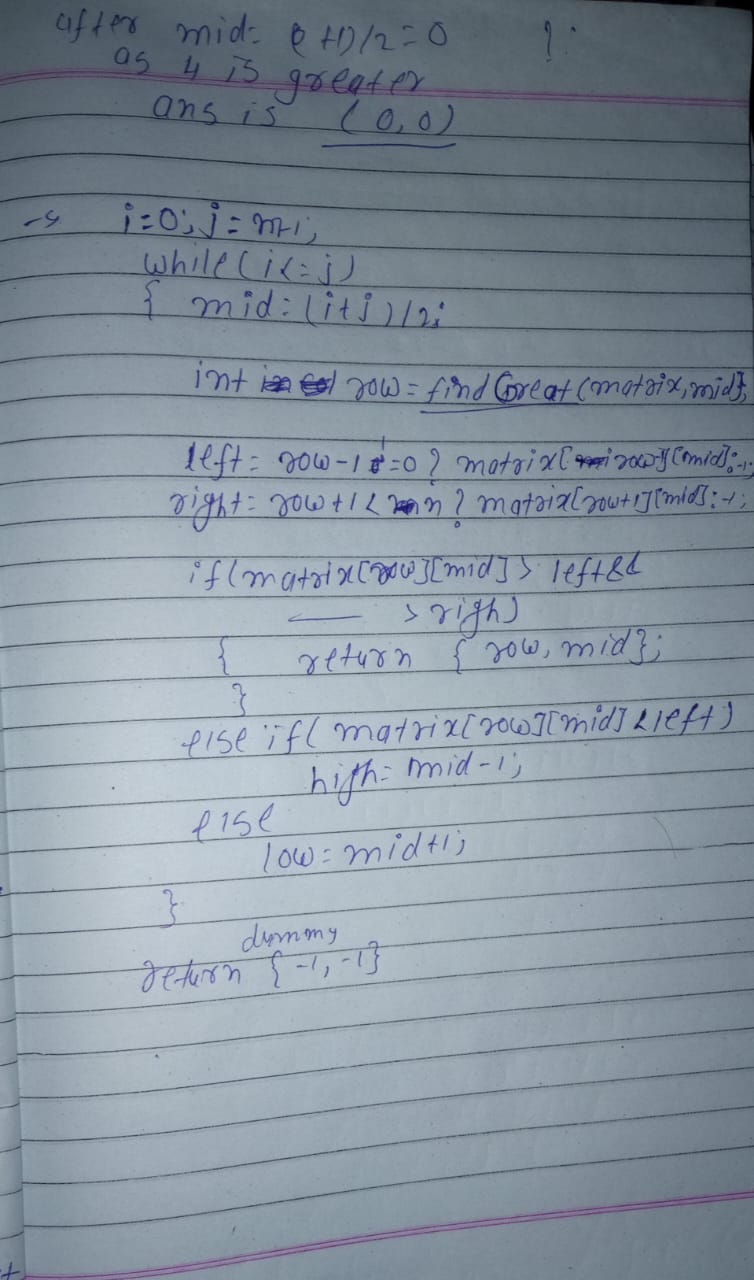 after mid= (0+1)/2=0
as 4 is greater
ans is (0,0)
→ i=0; j=m-1;
while(i<=j)
{ mid=(i+j)/2;
int row=findGreat(matrix,mid);
left= row-1 >=0 ? matrix[row][mid]:-1;
right= row+1 < n ? matrix[row+1][mid]:-1;
if(matrix[row][mid] > left &&
—— > right)
{ return { row, mid};
}
else if( matrix[row][mid] < left)
high= mid-1;
else
low= mid+1;
}
dummy
return {-1, -1}